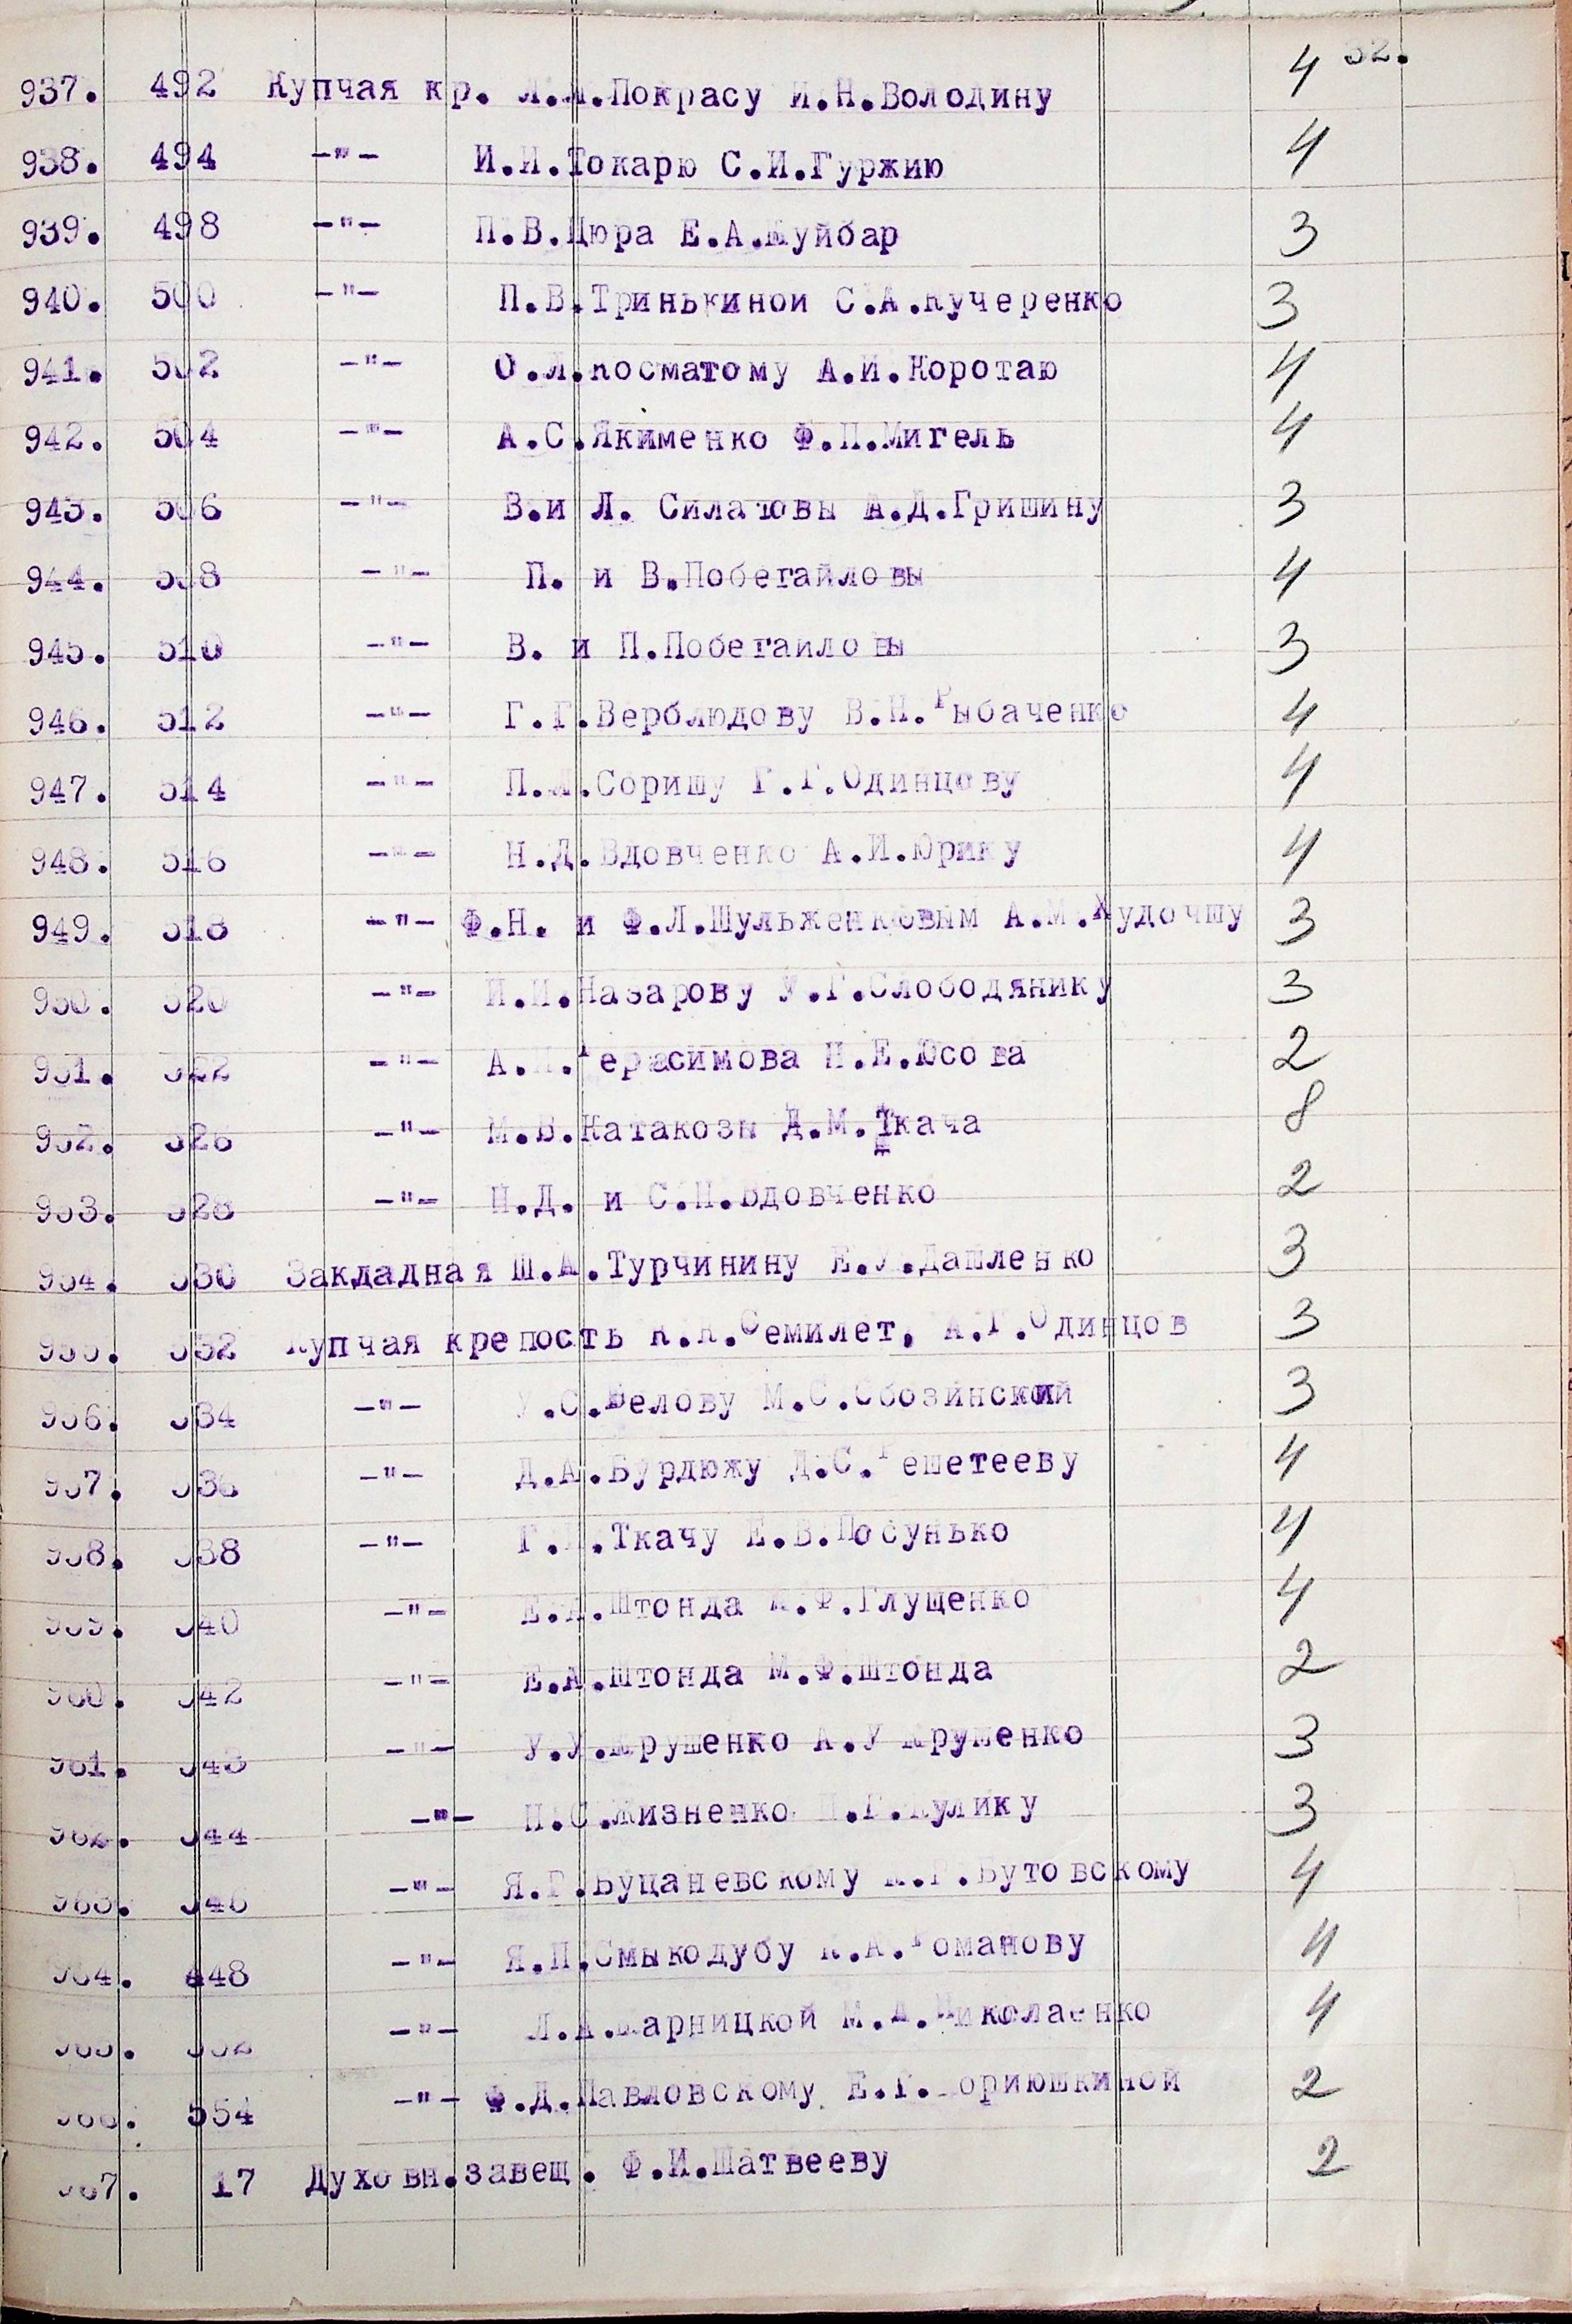 32.
937. 492 Купчая кр. Л.И.Покрасу И.Н.Володину 4
938. 494 -"- И.И.Токарю С.И.Гуржию 4
939. 498 -"- П.В.Цюра Е.А.Шуйбар 3
940. 500 -"- П.В.Тринькиной С.А.Кучеренко 3
941. 502 -"- О.Л.Косматому А.И.Коротаю 4
942. 504 -"- А.С.Якименко Ф.П.Мигель 4
943. 506 -"- В.и Л. Силатовы А.Д.Гришину 3
944. 508 -"- П. и В.Побегайловы 4
945. 510 -"- В. и П.Побегайловы 3
946. 512 -"- Г.Г.Верблюдову В.Н.Рыбаченко 4
947. 514 -"- П.Л.Соришу Г.Г.Одинцову 4
948. 516 -"- Н.Д.Вдовченко А.И.Юрику 4
949. 518 -"- Ф.Н. и Ф.Л.Шульженковым А.М.Худочшу 3
950. 520 -"- И.И.Назарову У.Г.Слободянику 3
951. 522 -"- А.П.Герасимова Н.Е.Юсова 2
952. 526 -"- М.В.Катакозы Д.М.Ткача 8
953. 528 -"- Н.Д. и С.Н.Вдовченко 2
954. 530 Закдадная Ш.А.Турчинину Е.У.Дашленко 3
955. 532 Купчая крепость К.К.Семилет, А.Г.Одинцов 3
956. 534 -"- У.С.Белову М.С.Обозинский 3
957. 536 -"- Д.А.Бурдюжу Д.С.Решетееву 4
958. 538 -"- Г. Ткачу Е.В.Посунько 4
959. 540 -"- Е.А.Штонда М.Ф.Глущенко 4
960. 542 -"- Е.А.Штонда М.Ф.Штонда 2
961. 543 -"- У.У.Крушенко А.У Крушенко 3
962. 544 -"- Н.С.Жизненко Кулику 3
963. 546 -"- Я.Г.Буцаневскому Бутовскому 4
964. 448 -"- Я.П.Смыкодубу К.А.Романову 4
965. 552 -"- Л.А.Варницкой М.А.Николаенко 4
966. 554 -"- Ф.Д.Павловскому Е.Г. 2
967. 17 Духовн.завещ. Ф.И.Шатвееву 2